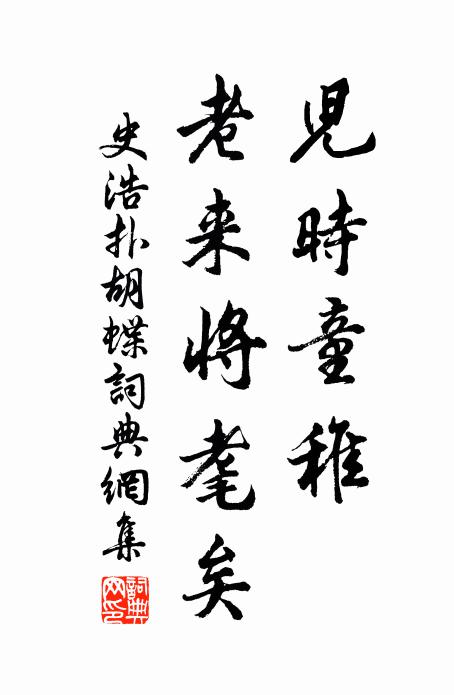 児時童稚
老来將耄矣
史浩扑胡蝶詞典網集
詞典網印